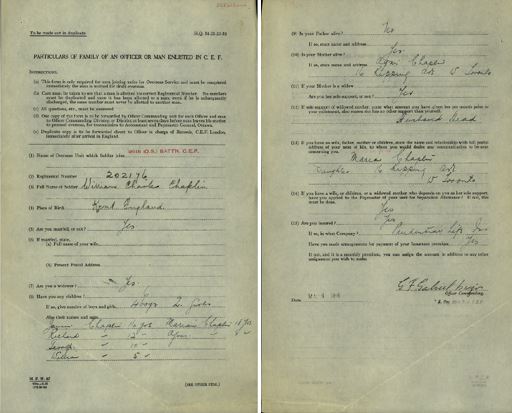 To be made out in duplicate.
H.Q. 54-21-23-53
PARTICULARS OF FAMILY OF AN OFFICER OR MAN ENLISTED IN C. E. F.
INSTRUCTIONS.
(a) This form is only required for men joining units for Overseas Service and must be completed
immediately the man is
(b) Care must be taken to see that a man is allotted his correct Regimental Number. No numbers
must be duplicated and once it has been allotted to a man, even if he is subsequently
discharged, the same number must never be allotted to another man.
(c) All questions, etc., must be answered
(d) One copy of this form to be forwarded by Officer Commanding unit for each Officer and man
to Officer Commanding Division or District at least seven days before unit leaves his station
(e) Duplicate copy to be forwarded direct to Officer in charge of Records, C.E.F. London,
immediately after arrival in England.
(1) Name of Overseas Unit which Soldier joins
(O.S.) BATTN. C.E.F.
(2) Regimental Number 202176
(3) Full Name of Soldier William Charles Chaplin
(4) Place of Birth Kent England
(5) Are you married, or not? Yes
(6) If married, state,
(a) Full name of your wife
(b) Present Postal Address
(7) Are you a widower? Yes
(8) Have you any children?
If so, give number of boys and girls. 4 Boys 2 girls
Also their names and ages
Chaplin 16 yrs Marian Chaplin 18 yrs
Richard 12
10
William 5
(SEE OTHER SIDE.)
(9) Is your Father alive? No
If so, state name and address
(10) Is your Mother alive? Yes
If so, state name and address Chaplin
W Toronto
(11) If your Mother is a widow Yes
Are you her sole support, or not?
(12) If sole support of widowed mother, state what amount you have given her per month prior to
your enlistment, also reason she has no other support than yourself.
Husband Dead
(13) If you have no wife, father, mother or children, state the name and relationship with full postal
address of your next of kin, to whom you would desire any communication to be sent
concerning you.
Marian Chaplin
Daughter
W Toronto
(14) If you have a wife, or children, or a widowed mother who depends on you as her sole support,
have you applied to the Paymaster of your unit for Separation Allowance? If not, this
must be done.
Yes
(15) Are you insured? Yes
If so, in what Company? Life Ins
Have you made arrangements for payment of your Insurance premium. Yes
If not, and it is a monthly premium, you can assign the amount in addition to any other
assignment you wish to make.
Officer Commanding.
Date